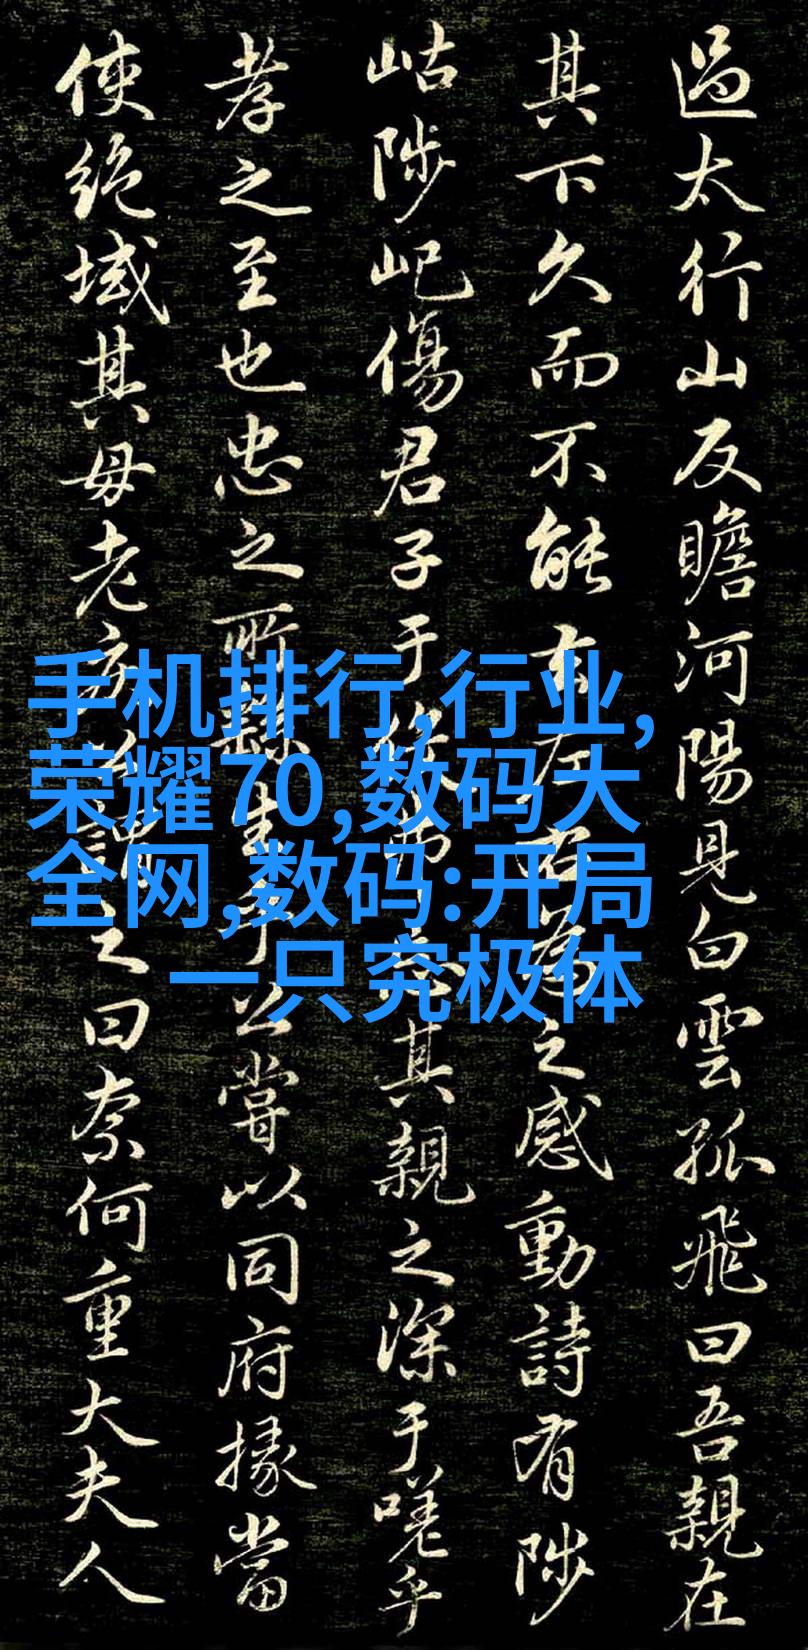 過太行山反瞻河陽見白雲孤飛曰吾親在
其下久而不能去左右為之感動詩有陟
岵陟屺傷君子于役弗忘其親之深于嗟乎
孝之至也忠之所繇生乎公嘗以同府掾當
使絕域其母老疾公謂之曰奈何重大夫人
手机排行,行业,
荣耀70,数码大
全网,数码:开局
一只究极体